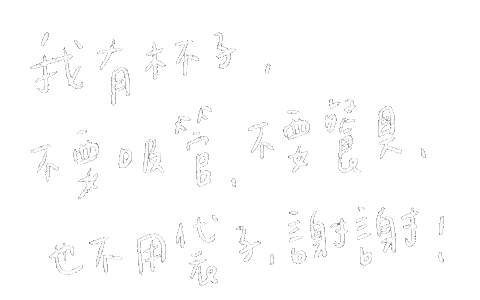 我有杯子，
不要吸管、不要餐具、
也不用袋子，謝謝！